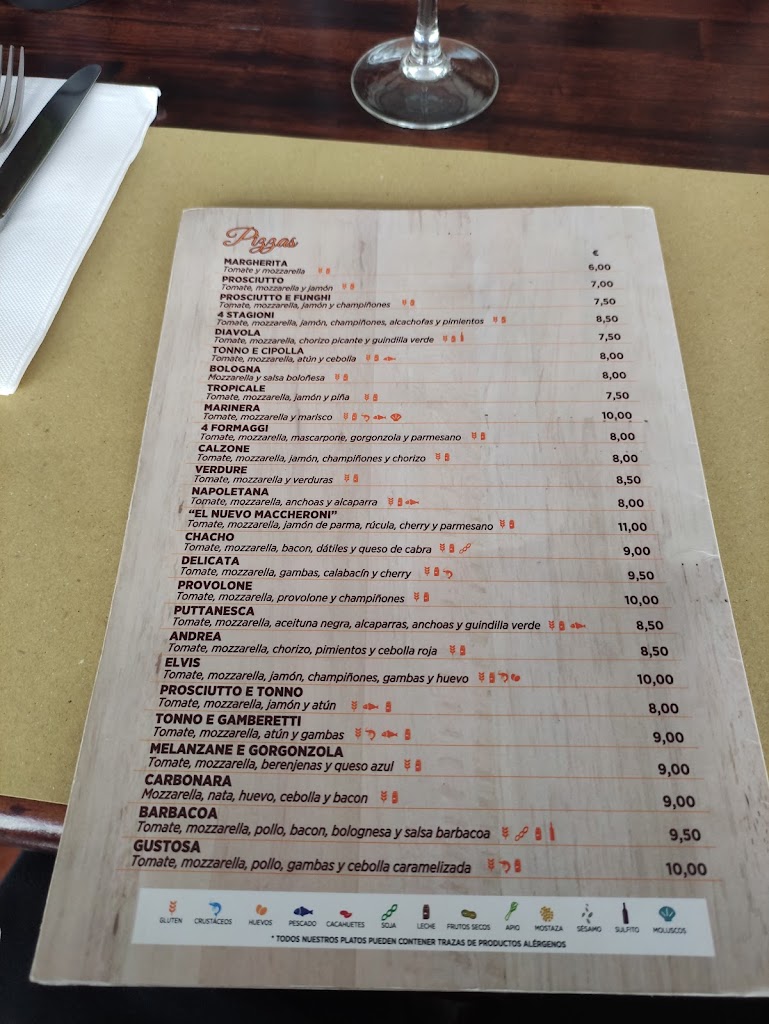 Pizzas
€
MARGHERITA
Tomate y mozzarella 6,00
PROSCIUTTO
Tomate, mozzarella y jamón 7,00
PROSCIUTTO E FUNGHI
Tomate, mozzarella, jamón y champiñones 7,50
4 STAGIONI
Tomate, mozzarella, jamón, champiñones, alcachofas y pimientos 8,50
DIAVOLA
Tomate, mozzarella, chorizo picante y guindilla verde 7,50
TONNO E CIPOLLA
Tomate, mozzarella, atún y cebolla 8,00
BOLOGNA
Mozzarella y salsa boloñesa 8,00
TROPICALE
Tomate, mozzarella, jamón y piña 7,50
MARINERA
Tomate, mozzarella y marisco 10,00
4 FORMAGGI
Tomate, mozzarella, mascarpone, gorgonzola y parmesano 8,00
CALZONE
Tomate, mozzarella, jamón, champiñones y chorizo 8,00
VERDURE
Tomate, mozzarella y verduras 8,50
NAPOLETANA
Tomate, mozzarella, anchoas y alcaparra 8,00
“EL NUEVO MACCHERONI”
Tomate, mozzarella, jamón de parma, rúcula, cherry y parmesano 11,00
CHACHO
Tomate, mozzarella, bacon, dátiles y queso de cabra 9,00
DELICATA
Tomate, mozzarella, gambas, calabacín y cherry 9,50
PROVOLONE
Tomate, mozzarella, provolone y champiñones 10,00
PUTTANESCA
Tomate, mozzarella, aceituna negra, alcaparras, anchoas y guindilla verde 8,50
ANDREA
Tomate, mozzarella, chorizo, pimientos y cebolla roja 8,50
ELVIS
Tomate, mozzarella, jamón, champiñones, gambas y huevo 10,00
PROSCIUTTO E TONNO
Tomate, mozzarella, jamón y atún 8,00
TONNO E GAMBERETTI
Tomate, mozzarella, atún y gambas 9,00
MELANZANE E GORGONZOLA
Tomate, mozzarella, berenjenas y queso azul 9,00
CARBONARA
Mozzarella, nata, huevo, cebolla y bacon 9,00
BARBACOA
Tomate, mozzarella, pollo, bacon, bolognesa y salsa barbacoa 9,50
GUSTOSA
Tomate, mozzarella, pollo, gambas y cebolla caramelizada 10,00
GLUTEN CRUSTÁCEOS HUEVOS PESCADO CACAHUETES SOJA LECHE FRUTOS SECOS APIO MOSTAZA SÉSAMO SULFITO MOLUSCOS
* TODOS NUESTROS PLATOS PUEDEN CONTENER TRAZAS DE PRODUCTOS ALÉRGENOS